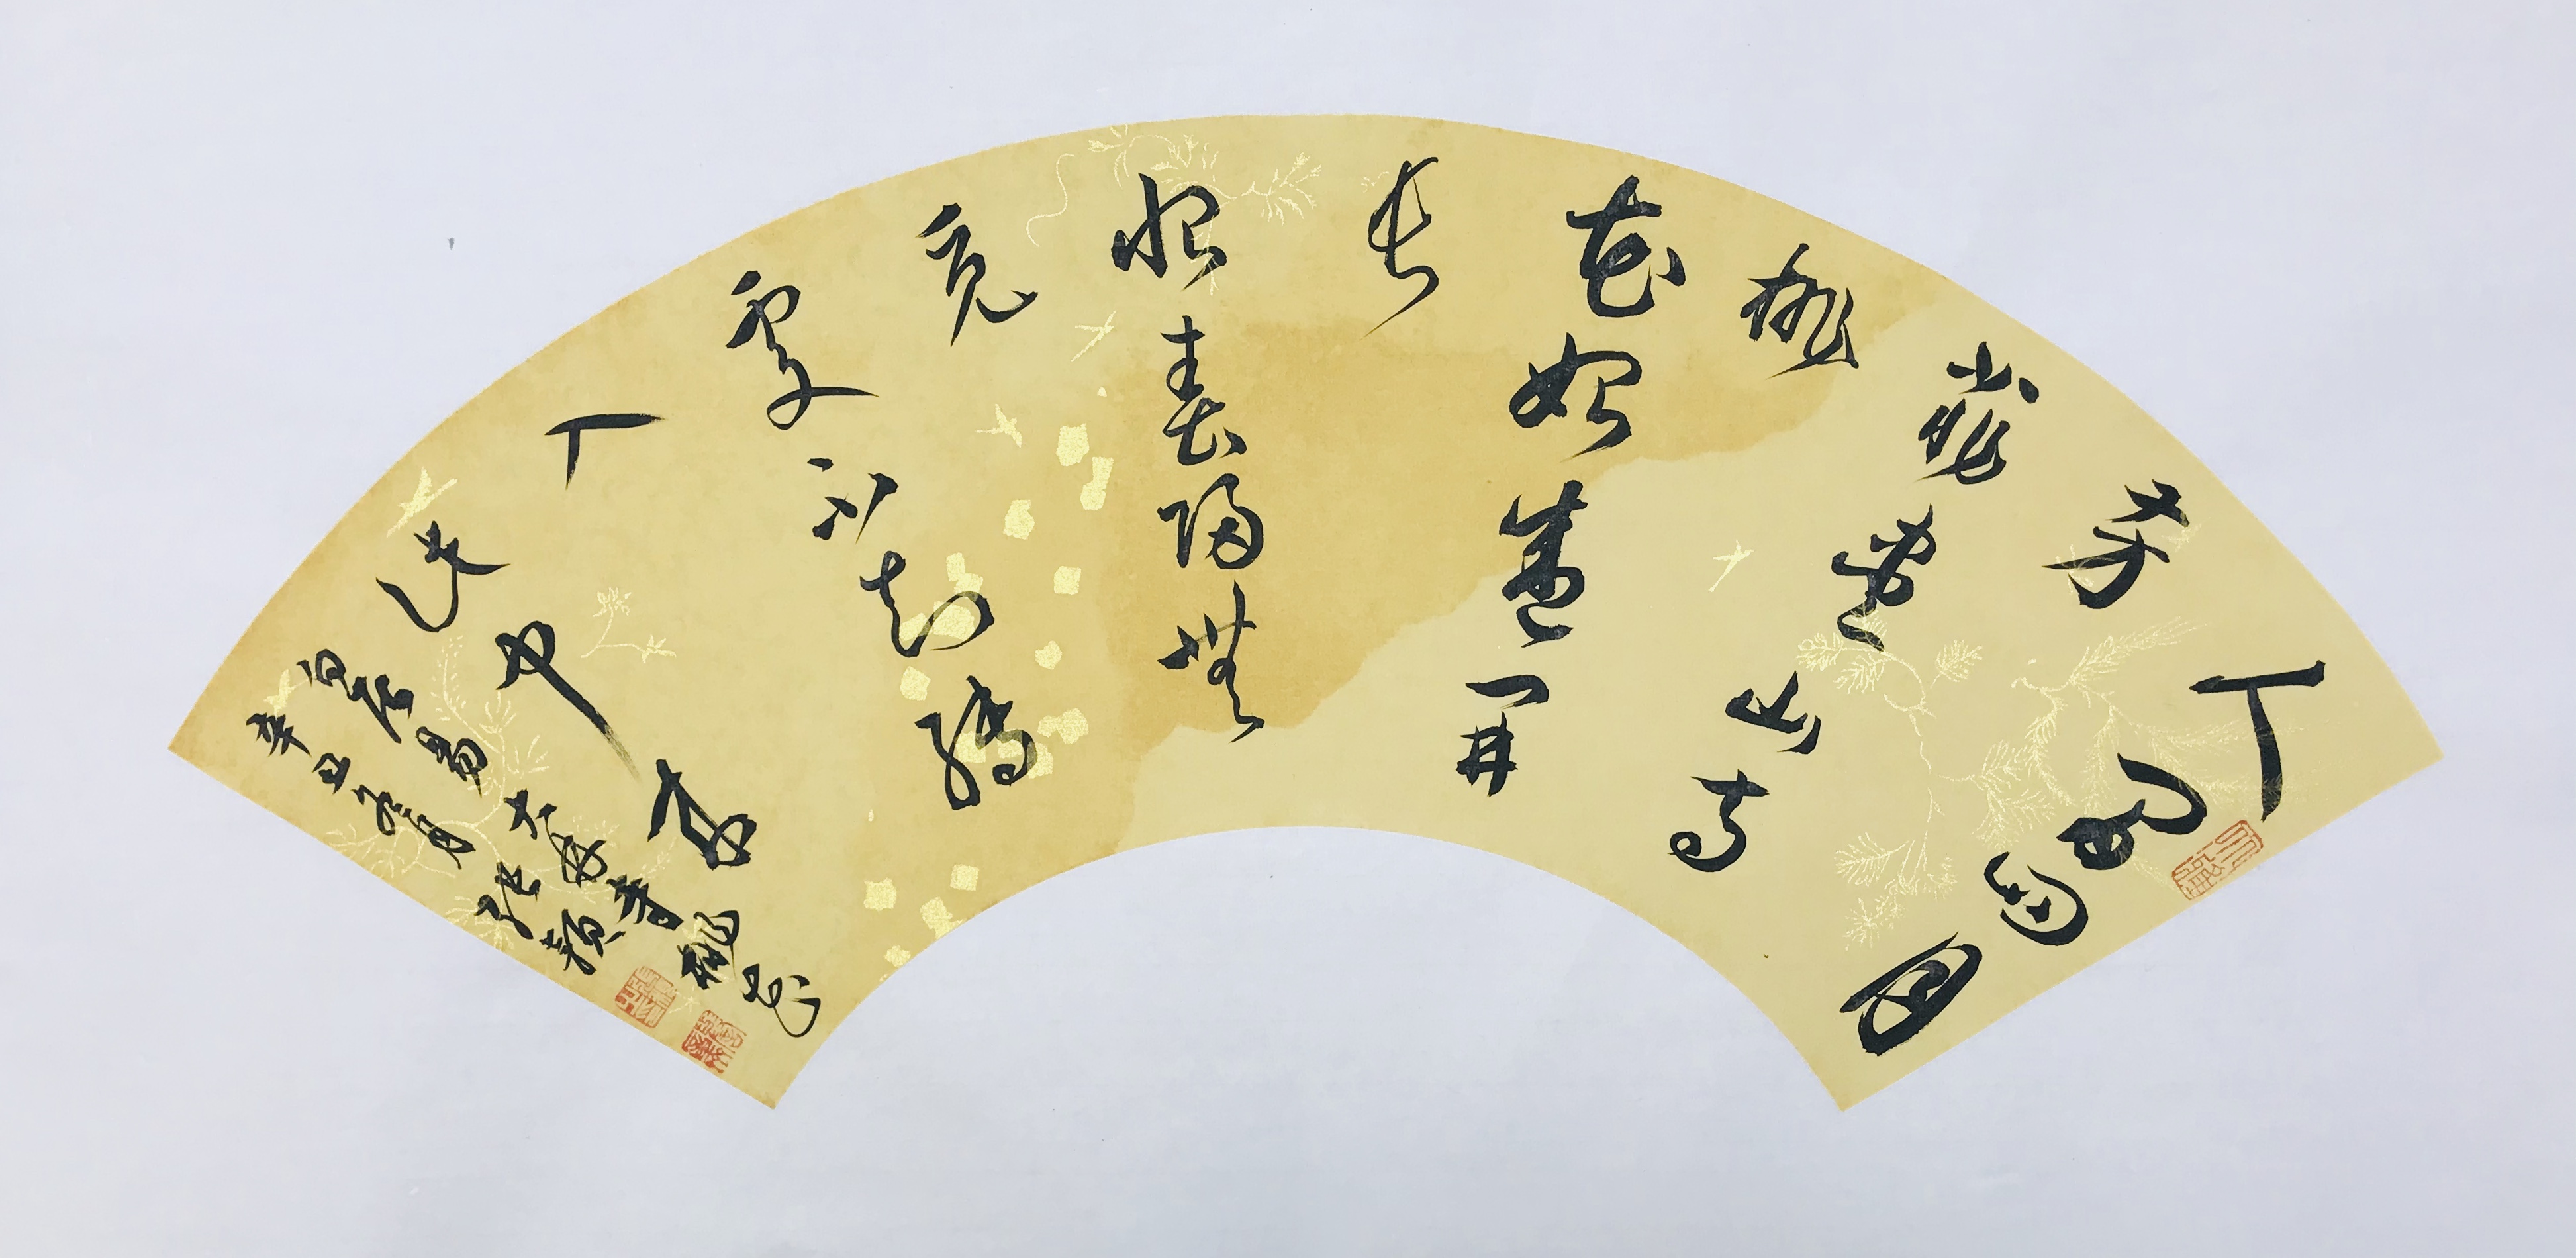 人間四月
芳
菲盡山寺
桃
花始盛開
長
恨春歸無
覓
處不知轉
入
此中来
白居易大林寺桃花
辛丑